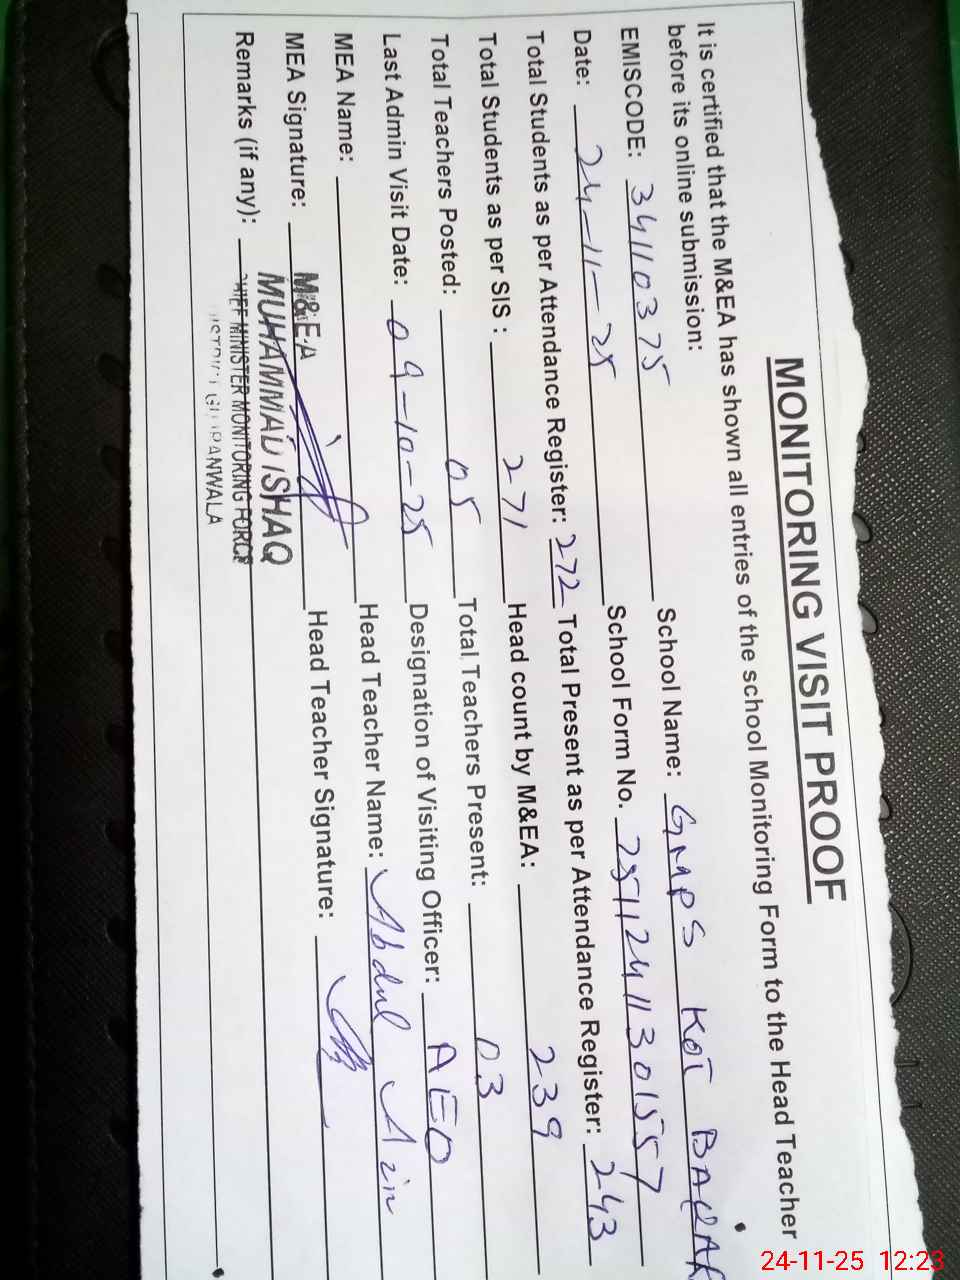 MONITORING VISIT PROOF
It is certified that the M&EA has shown all entries of the school Monitoring Form to the Head Teacher
before its online submission:
EMISCODE: 34110375 School Name: GMPS KOT BAQAR
Date: 24-11-25 School Form No. 25112411301557
Total Students as per Attendance Register: 272 Total Present as per Attendance Register: 243
Total Students as per SIS : 271 Head count by M&EA: 239
Total Teachers Posted: 05 Total Teachers Present: 03
Last Admin Visit Date: 09-10-25 Designation of Visiting Officer: AEO
MEA Name: Head Teacher Name: Abdul Azin
MEA Signature: Head Teacher Signature:
Remarks (if any):
M&E.A
MUHAMMAD ISHAQ
CHIEF MINISTER MONITORING FORCE
DISTRICT GUJRANWALA
24-11-25 12:23